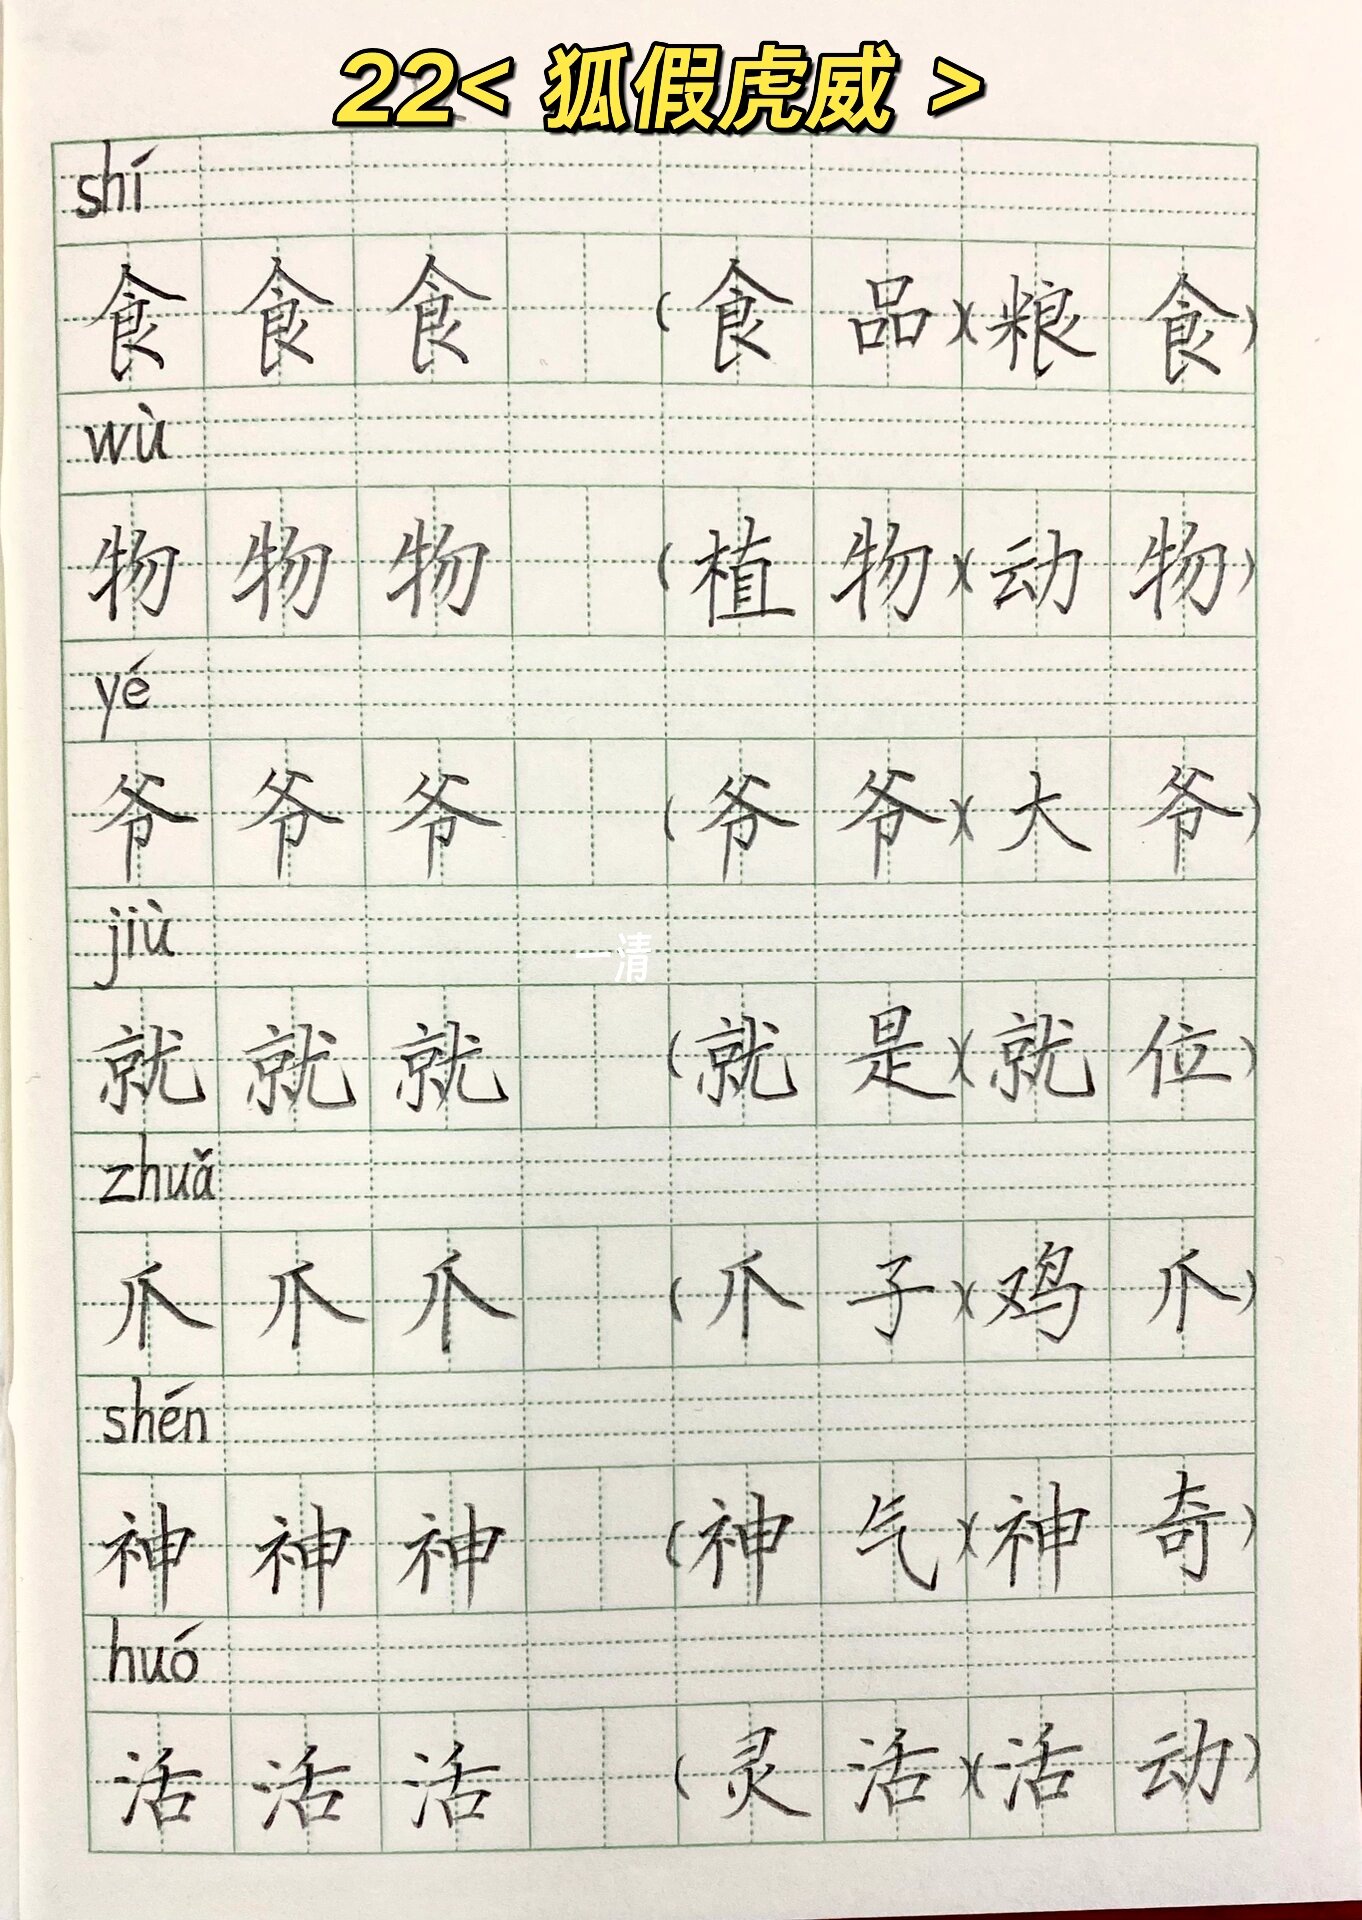 22< 狐假虎威 >
shí
食 食 食 (食 品)(粮 食)
wù
物 物 物 (植 物)(动 物)
yé
爷 爷 爷 (爷 爷)(大 爷)
jiù
一清
就 就 就 (就 是)(就 位)
zhuǎ
爪 爪 爪 (爪 子)(鸡 爪)
shén
神 神 神 (神 气)(神 奇)
huó
活 活 活 (灵 活)(活 动)